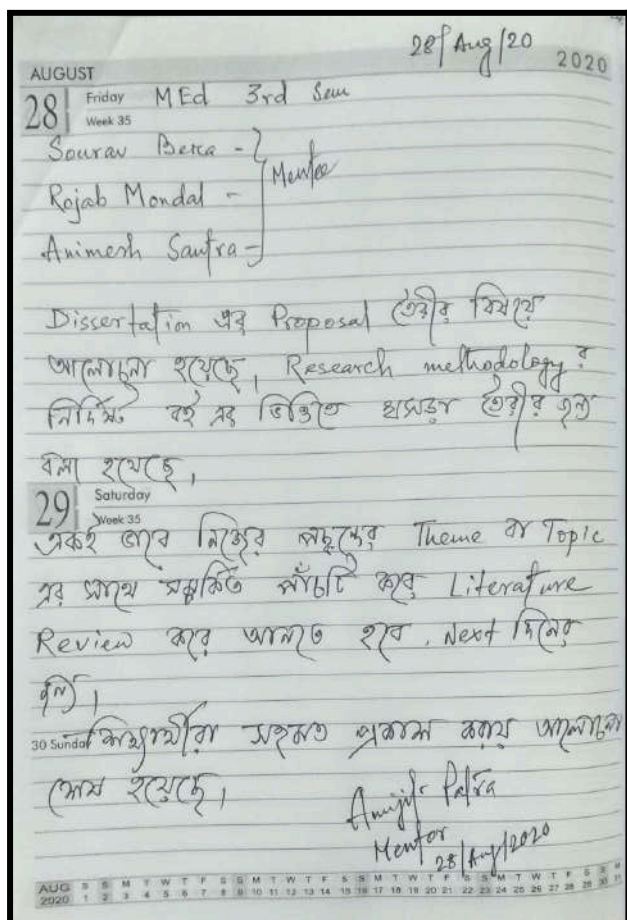 28/Aug/20
2020
AUGUST
28 Friday MEd 3rd Sem
Week 35
Sourav Bera -
Mentee
Rojab Mondal -
Animesh Santra -
Dissertation এর Proposal তৈরীর বিষয়ে
আলোচনা হয়েছে, Research methodology র
নির্দিষ্ট বই এর ভিত্তিতে খসড়া তৈরীর জন্য
বলা হয়েছে,
29 Saturday
Week 35
একই ভাবে নিজের পছন্দের Theme বা Topic
এর সাথে সম্পর্কিত পাঁচটি করে Literature
Review করে আনতে হবে, Next দিনের
জন্য,
30 Sunday শিক্ষার্থীরা সহমত প্রকাশ করায় আলোচনা
শেষ হয়েছে,
Patra
Mentor
28/Aug/2020
AUG S S M T W T F S S M T W T F S S M T W T F S S M T W T F S S M
2020 1 2 3 4 5 6 7 8 9 10 11 12 13 14 15 16 17 18 19 20 21 22 23 24 25 26 27 28 29 30 31